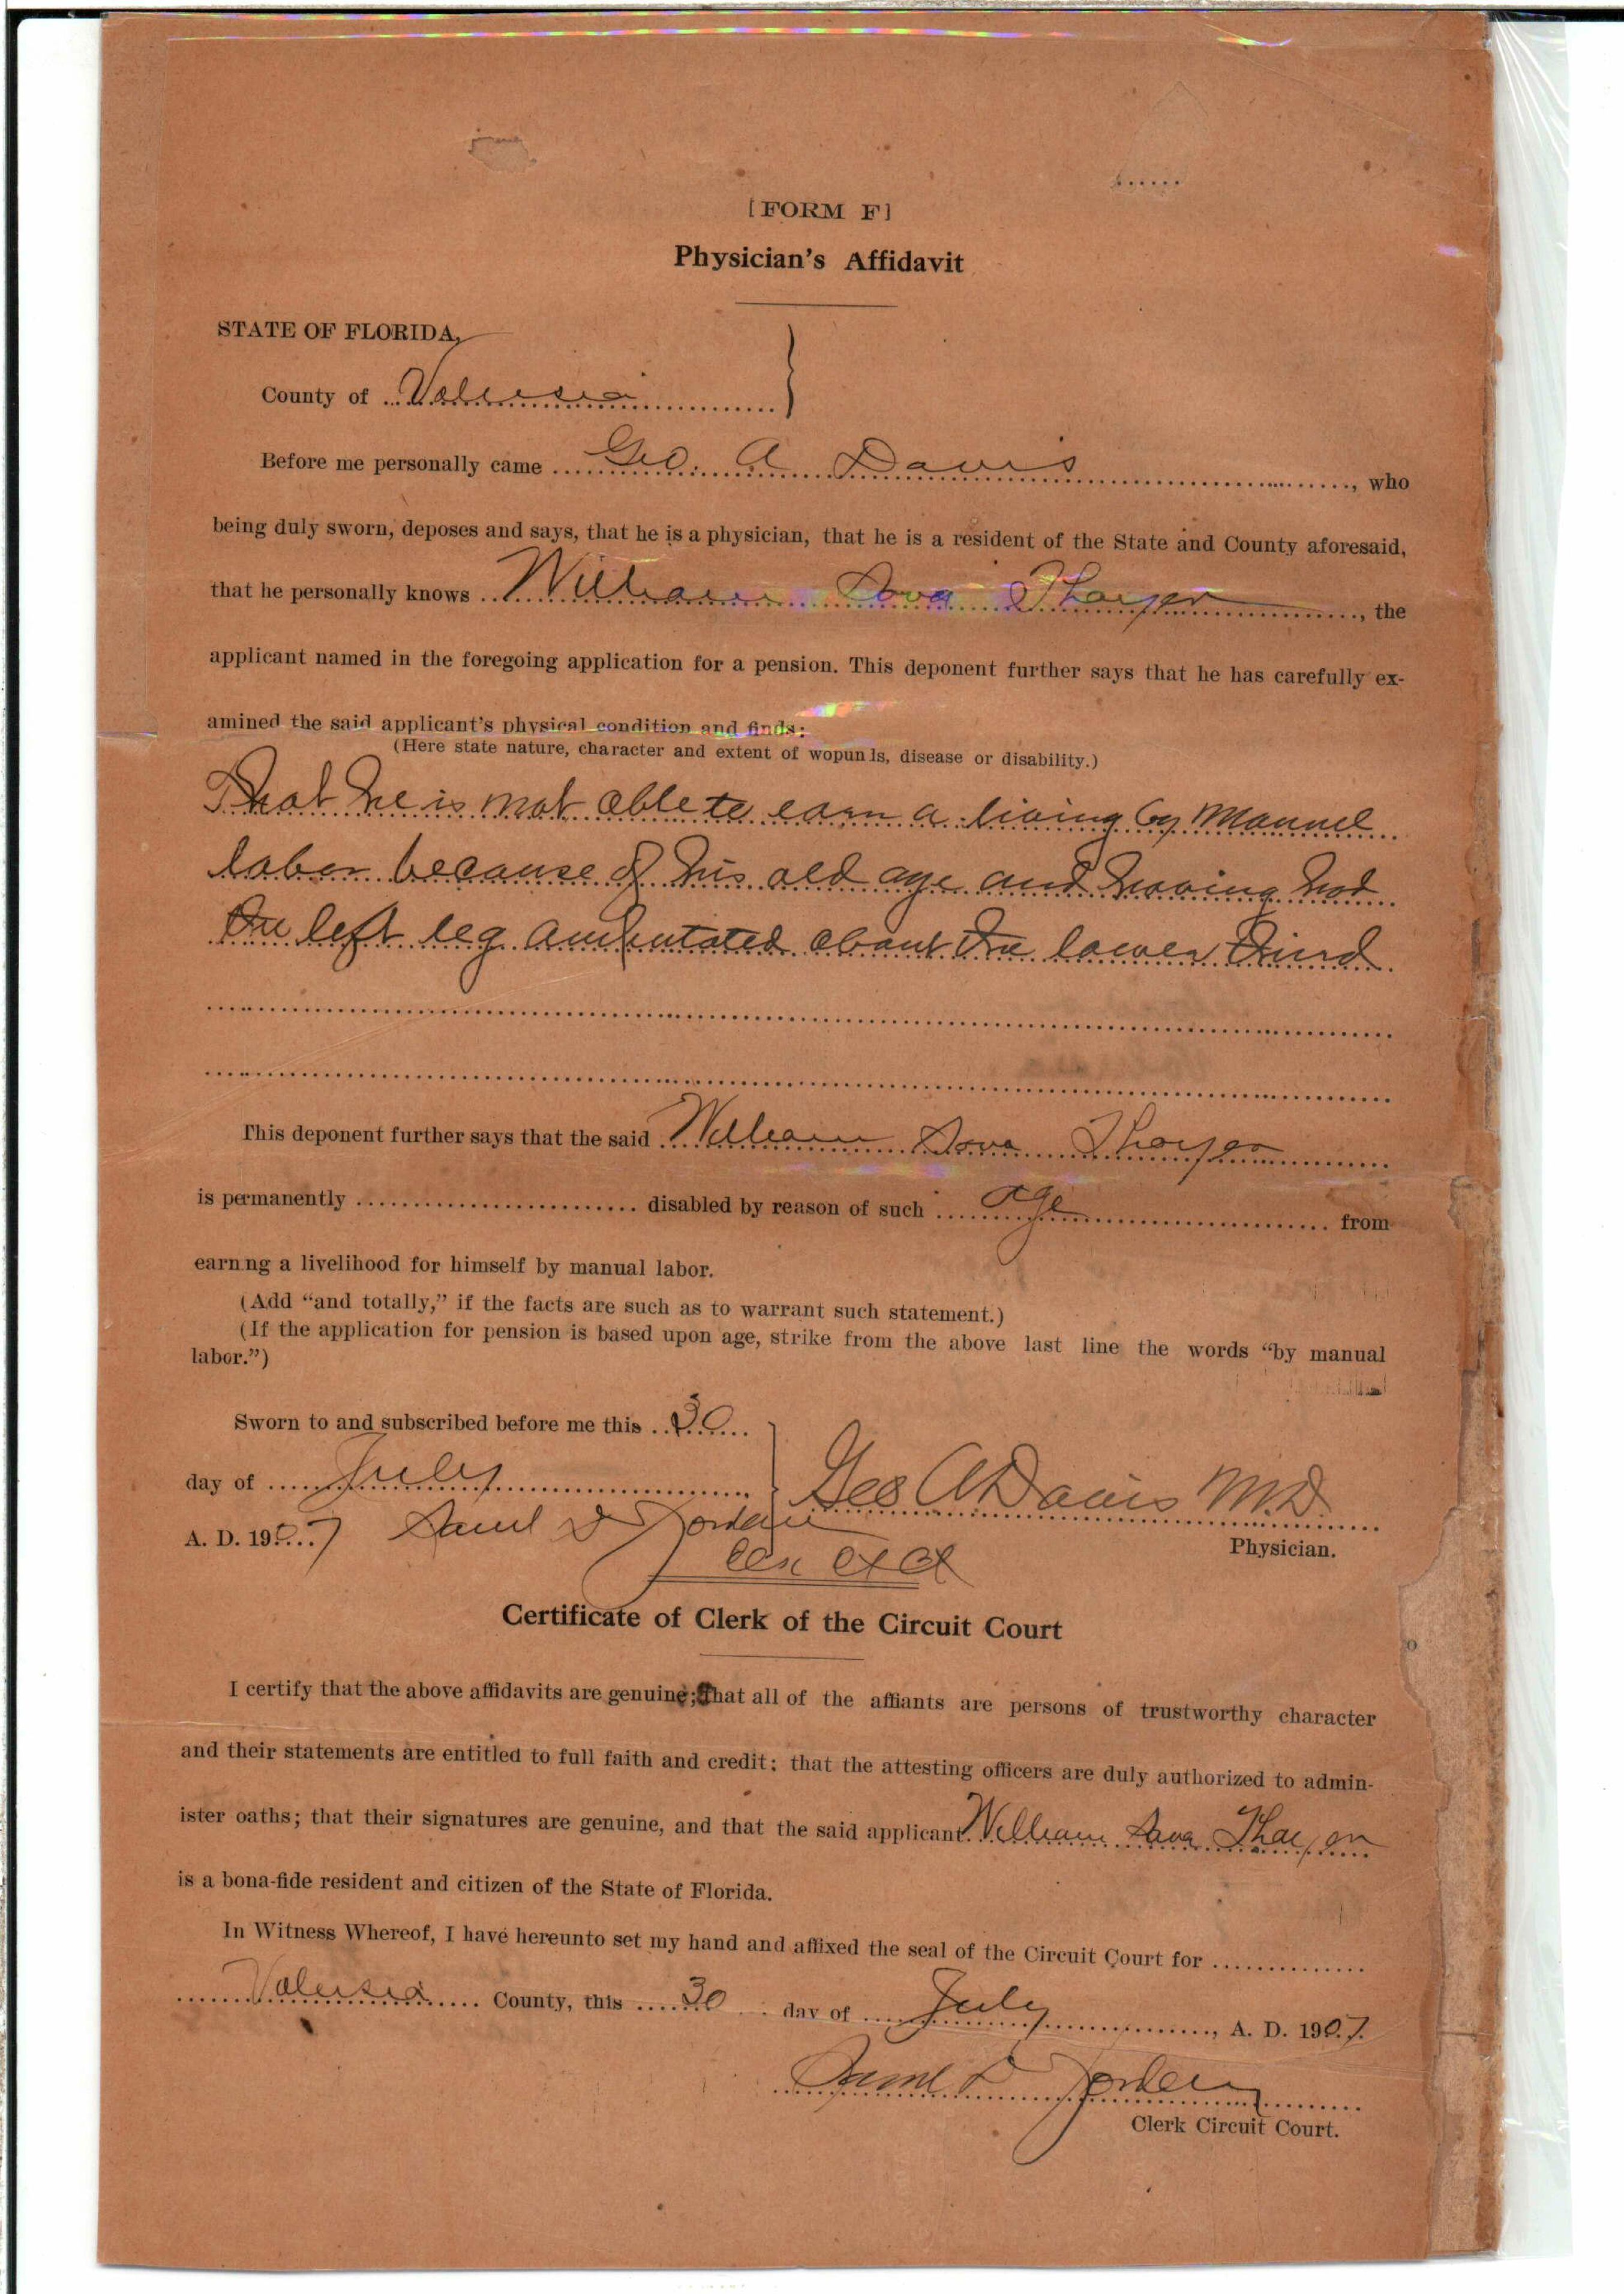 [FORM F]
Physician's Affidavit
STATE OF FLORIDA,
County of Volusia
Before me personally came Geo. A Davis, who
being duly sworn, deposes and says, that he is a physician, that he is a resident of the State and County aforesaid,
that he personally knows William Thayer, the
applicant named in the foregoing application for a pension. This deponent further says that he has carefully ex-
amined the said applicant's physical condition and finds:
(Here state nature, character and extent of wopunds, disease or disability.)
That he is not able to earn a living by Manuel
labor because of his old age and having had
the left leg amputated about the lower third
This deponent further says that the said William Thayer
is permanently disabled by reason of such age from
earning a livelihood for himself by manual labor.
(Add "and totally," if the facts are such as to warrant such statement.)
(If the application for pension is based upon age, strike from the above last line the words "by manual
labor.")
Sworn to and subscribed before me this 30
day of July
Geo A Davis M.D.
A. D. 1907 Saml D Jordan
Physician.
Clk Ct Ct
Certificate of Clerk of the Circuit Court
I certify that the above affidavits are genuine; that all of the affiants are persons of trustworthy character
and their statements are entitled to full faith and credit; that the attesting officers are duly authorized to admin-
ister oaths; that their signatures are genuine, and that the said applicant William Thayer
is a bona-fide resident and citizen of the State of Florida.
In Witness Whereof, I have hereunto set my hand and affixed the seal of the Circuit Court for
Volusia County, this 30 day of July, A. D. 1907.
Saml D Jordan
Clerk Circuit Court.